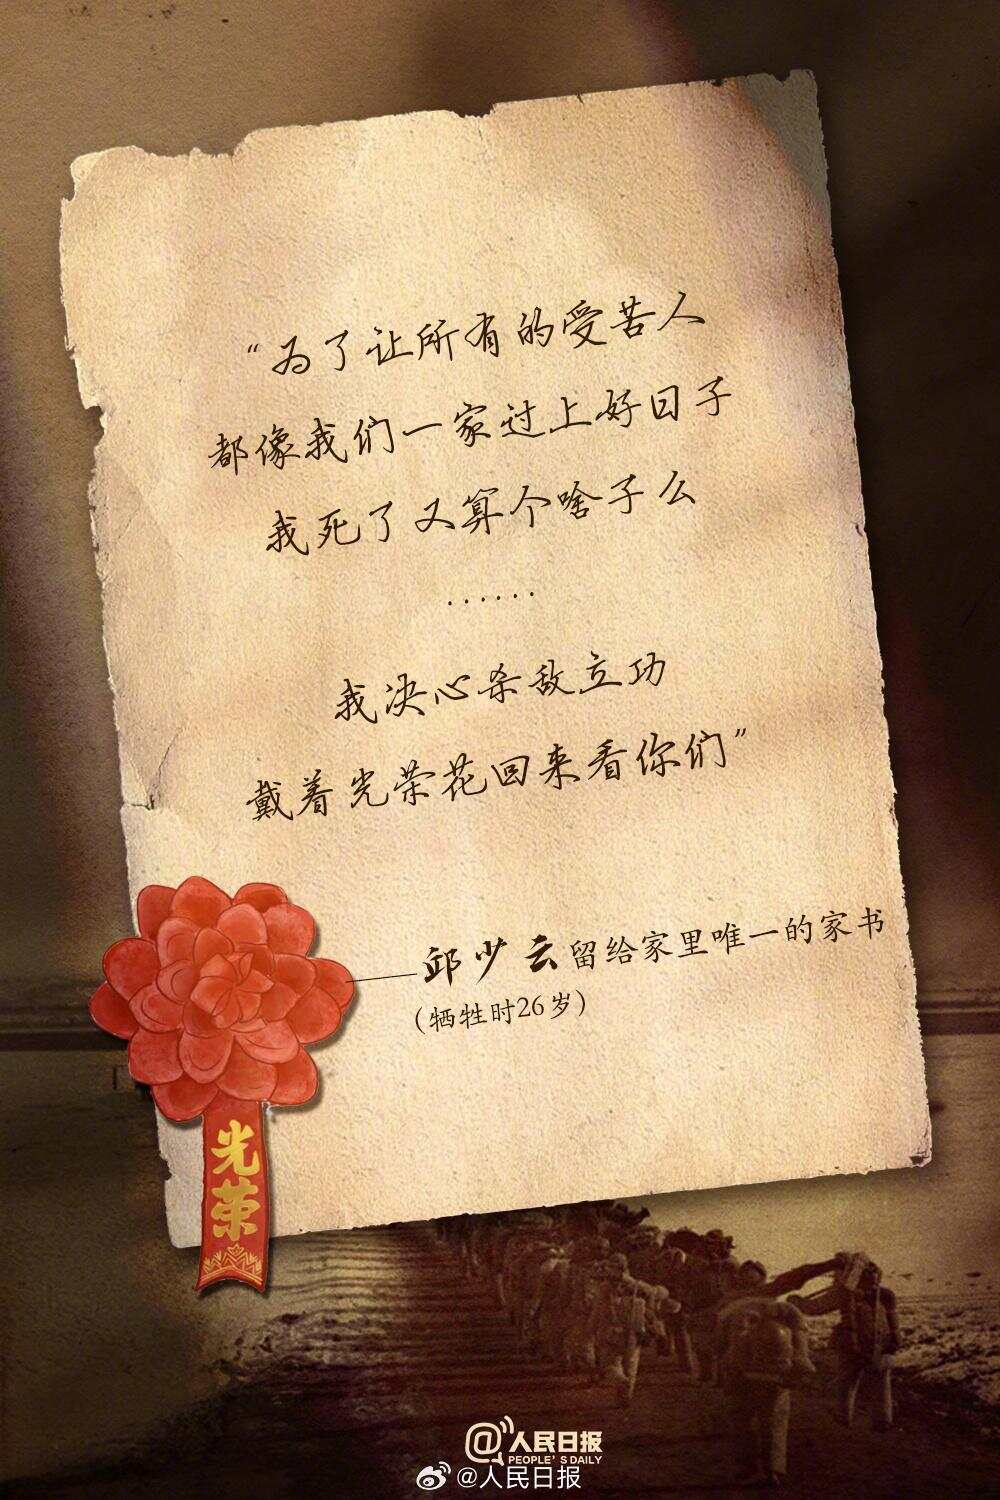 “为了让所有的受苦人
都像我们一家过上好日子
我死了又算个啥子么
······
我决心杀敌立功
戴着光荣花回来看你们”
邱少云留给家里唯一的家书
(牺牲时26岁)
光荣
@人民日报
PEOPLE'S DAILY
@人民日报